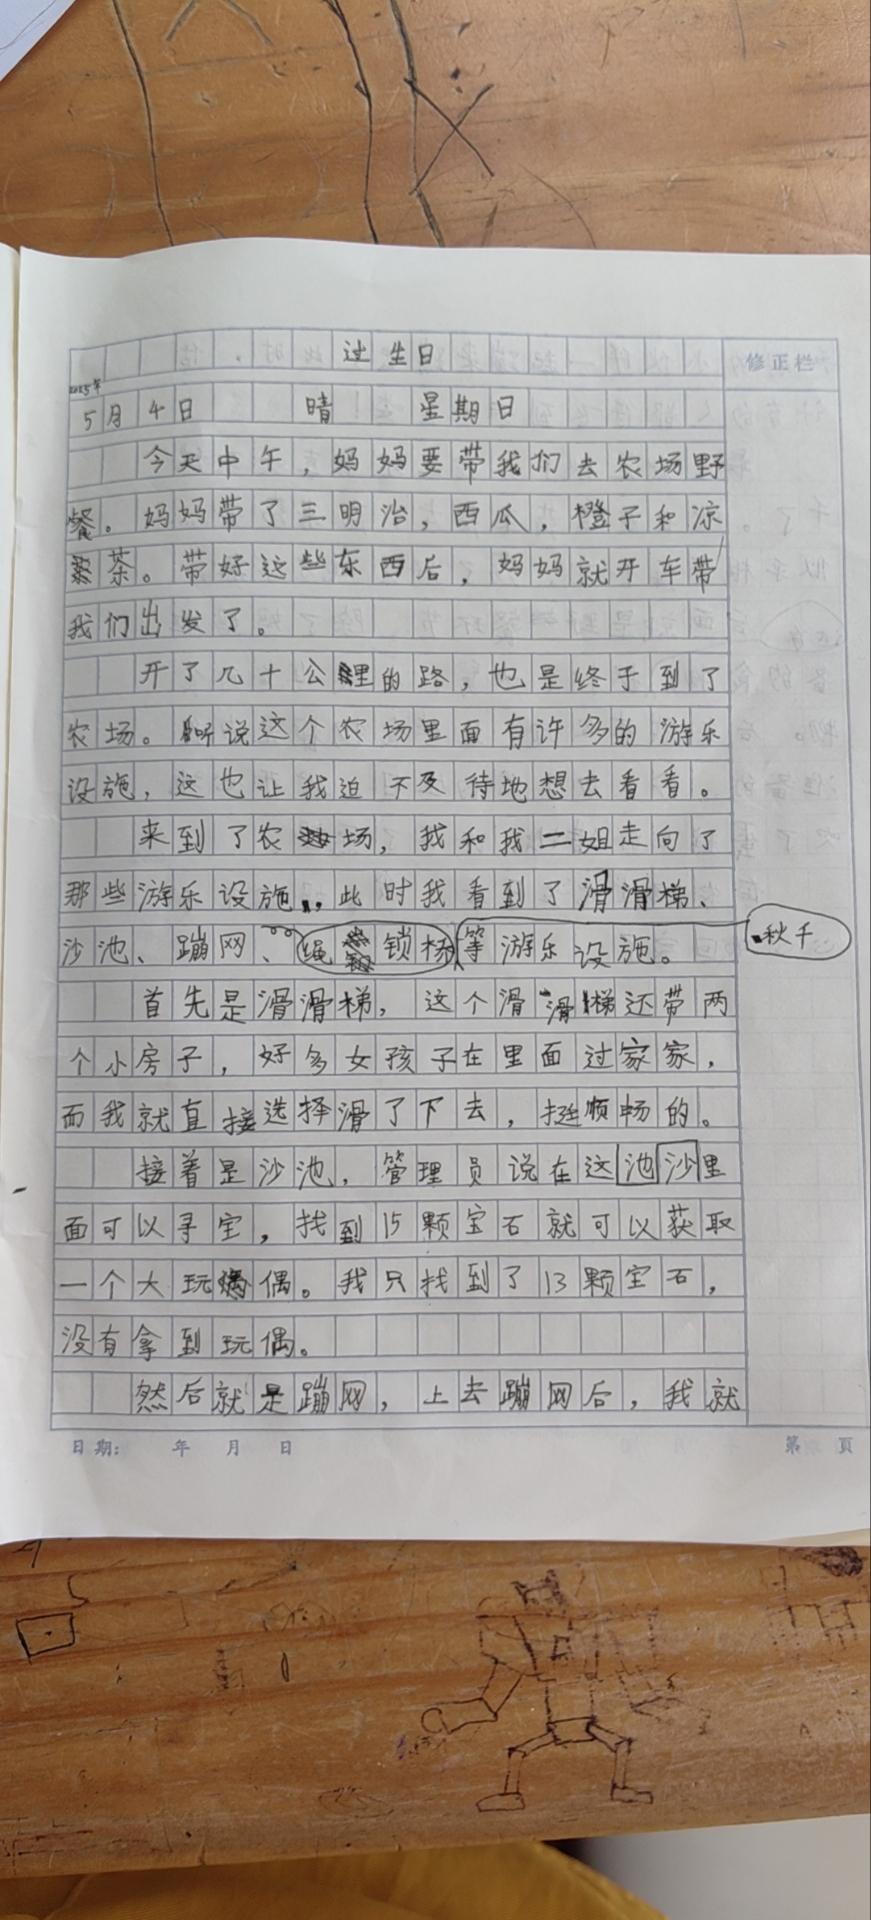 过生日
修正栏
2025年
5月4日 晴 星期日
今天中午，妈妈要带我们去农场野
餐。妈妈带了三明治，西瓜，橙子和凉
茶。带好这些东西后，妈妈就开车带
我们出发了。
开了几十公里的路，也是终于到了
农场。听说这个农场里面有许多的游乐
设施，这也让我迫不及待地想去看看。
来到了农场，我和我二姐走向了
那些游乐设施，此时我看到了滑滑梯、
沙池、蹦网、绳锁桥等游乐设施。
秋千
首先是滑滑梯，这个滑滑梯还带两
个小房子，好多女孩子在里面过家家，
而我就直接选择滑了下去，挺顺畅的。
接着是沙池，管理员说在这池沙里
面可以寻宝，找到15颗宝石就可以获取
一个大玩偶。我只找到了13颗宝石，
没有拿到玩偶。
然后就是蹦网，上去蹦网后，我就
日期： 年 月 日
第 页